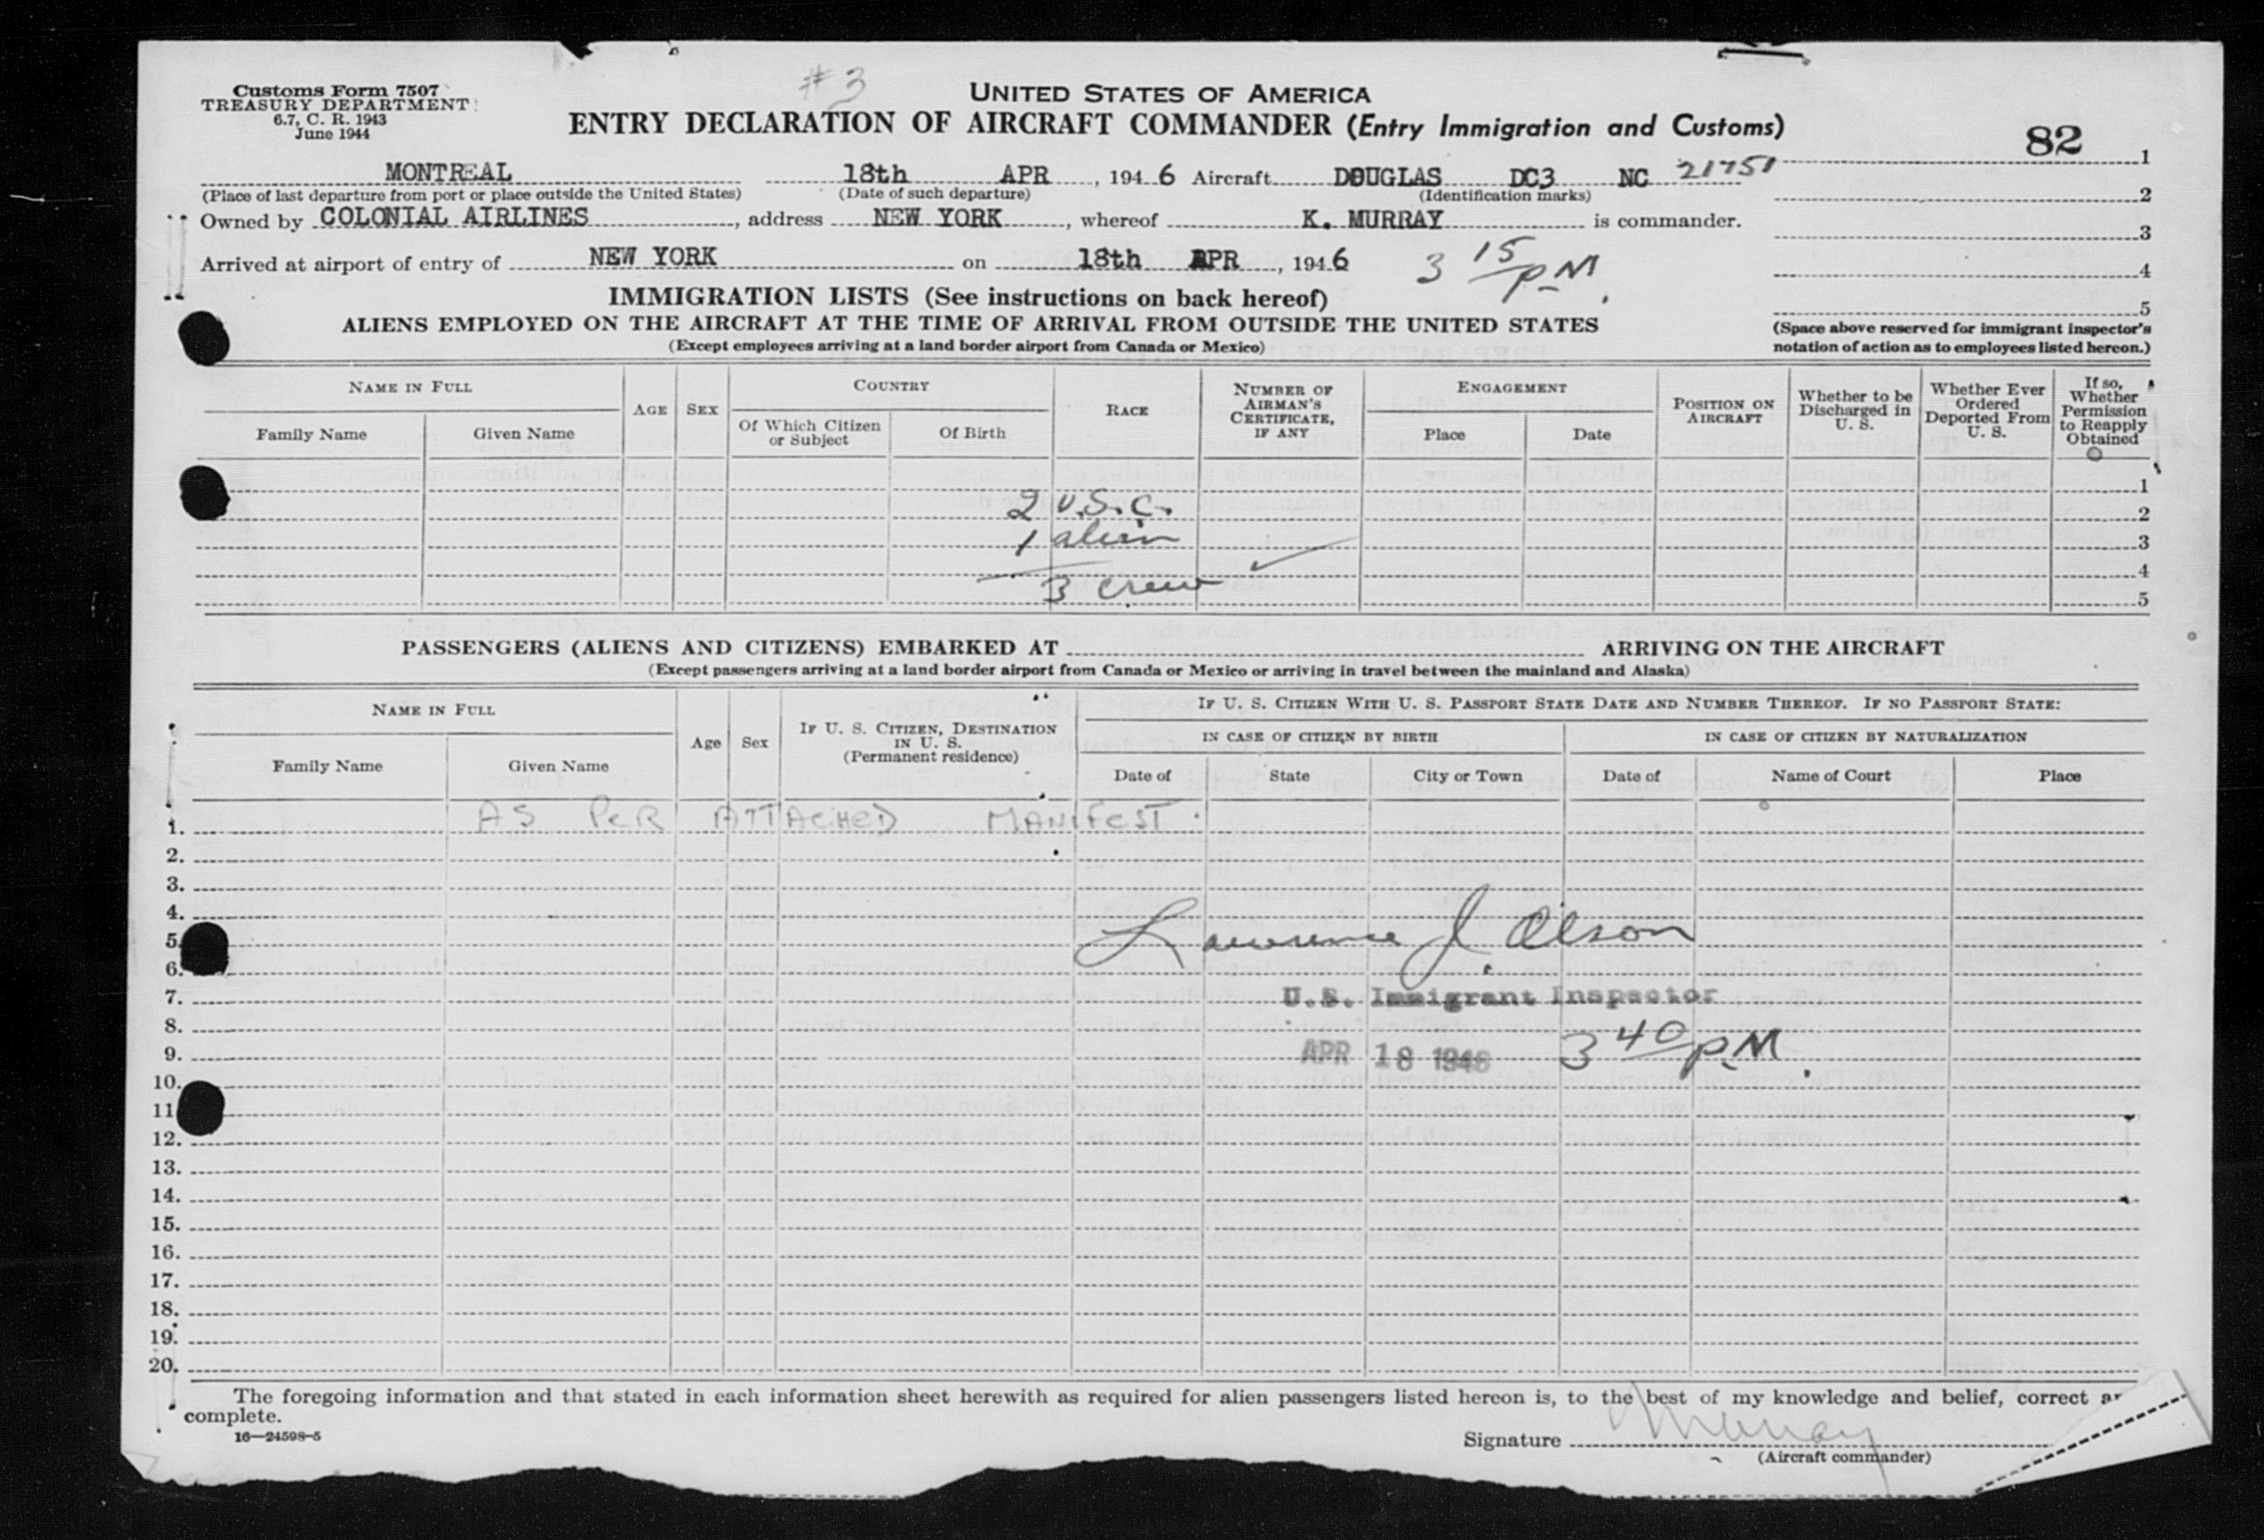 #3
Customs Form 7507
TREASURY DEPARTMENT
6.7, C. R. 1943
June 1944
UNITED STATES OF AMERICA
ENTRY DECLARATION OF AIRCRAFT COMMANDER (Entry Immigration and Customs)
82
MONTREAL 18th APR, 1946 Aircraft DOUGLAS DC3 NC 21751 1
(Place of last departure from port or place outside the United States) (Date of such departure) (Identification marks) 2
Owned by COLONIAL AIRLINES, address NEW YORK, whereof K. MURRAY is commander. 3
Arrived at airport of entry of NEW YORK on 18th APR, 1946 3 15 PM. 4
5
IMMIGRATION LISTS (See instructions on back hereof)
ALIENS EMPLOYED ON THE AIRCRAFT AT THE TIME OF ARRIVAL FROM OUTSIDE THE UNITED STATES
(Except employees arriving at a land border airport from Canada or Mexico)
(Space above reserved for immigrant inspector's
notation of action as to employees listed hereon.)
NAME IN FULL
Family Name
Given Name
AGE
SEX
COUNTRY
Of Which Citizen
or Subject
Of Birth
RACE
NUMBER OF
AIRMAN'S
CERTIFICATE,
IF ANY
ENGAGEMENT
Place
Date
POSITION ON
AIRCRAFT
Whether to be
Discharged in
U. S.
Whether Ever
Ordered
Deported From
U. S.
If so,
Whether
Permission
to Reapply
Obtained
1
2 U.S.C. 2
1 alien 3
3 crew 4
5
PASSENGERS (ALIENS AND CITIZENS) EMBARKED AT ARRIVING ON THE AIRCRAFT
(Except passengers arriving at a land border airport from Canada or Mexico or arriving in travel between the mainland and Alaska)
NAME IN FULL
Family Name
Given Name
Age
Sex
IF U. S. CITIZEN, DESTINATION
IN U. S.
(Permanent residence)
IF U. S. CITIZEN WITH U. S. PASSPORT STATE DATE AND NUMBER THEREOF. IF NO PASSPORT STATE:
IN CASE OF CITIZEN BY BIRTH
IN CASE OF CITIZEN BY NATURALIZATION
Date of
State
City or Town
Date of
Name of Court
Place
1. AS PER ATTACHED MANIFEST.
2.
3.
4.
5. Lawrence J. Olson
6.
7. U.S. Immigrant Inspector
8.
9. APR 18 1946 3 40 PM.
10.
11
12.
13.
14.
15.
16.
17.
18.
19.
20.
The foregoing information and that stated in each information sheet herewith as required for alien passengers listed hereon is, to the best of my knowledge and belief, correct
complete.
16—24598-5
Signature Murray
(Aircraft commander)